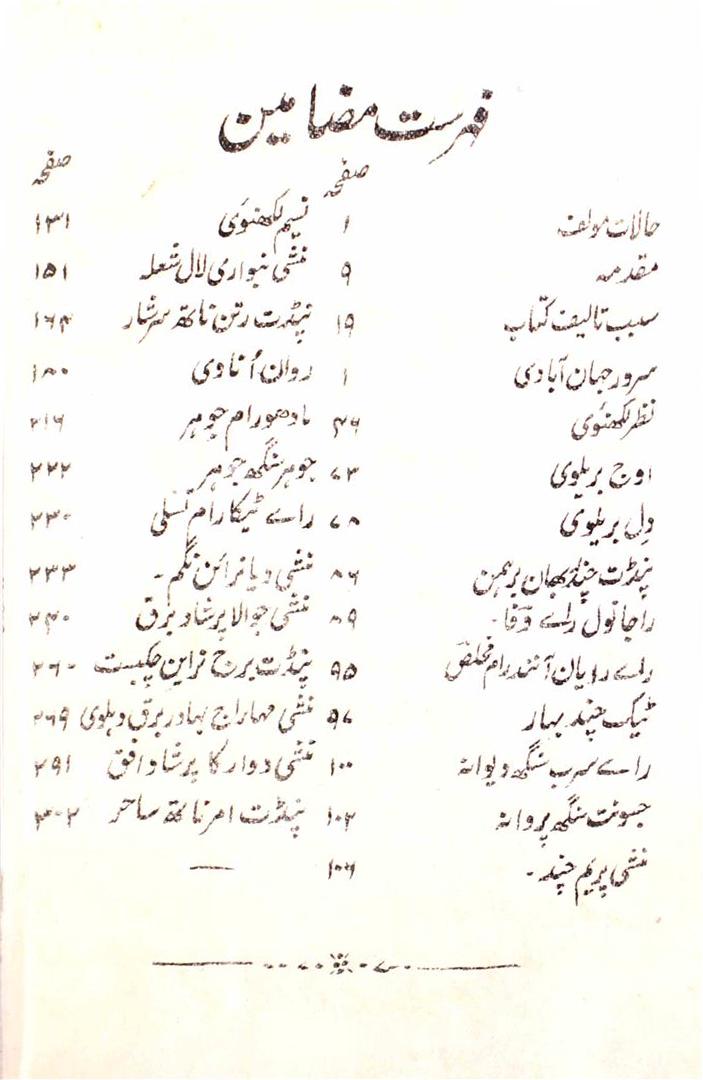 فہرست مضامین
صفحہ صفحہ
حالات مولف ۱ نسیم لکھنوی ۱۳۱
مقدمہ ۹ منشی بنواری لال شعلہ ۱۵۱
سبب تالیف کتاب ۱۹ پنڈت رتن ناتھ سرشار ۱۶۴
سرور جہان آبادی ۱ روان اُناوی ۱۸۰
نظر لکھنوی ۴۶ مادھورام جوہر ۲۱۶
اوج بریلوی ۷۳ جوہر سنگھ جوہر ۲۲۲
دل بریلوی ۷۸ راے ٹیکا رام تسلی ۲۳۰
پنڈت چندربھان برہمن ۸۶ منشی دیا نرائن نگم۔ ۲۳۳
راجا نول راے وفا۔ ۸۹ منشی جوالا پرشاد برق ۲۴۰
راے رایان آنند رام مخلص ۹۵ پنڈت برج نراین چکبست ۲۶۰
ٹیک چند بہار ۹۷ منشی مہاراج بہادر برق دہلوی ۲۶۹
راے سرب سنگھ دیوانہ ۱۰۰ منشی دوارکا پرشاد افق ۲۹۱
جسونت سنگھ پروانہ ۱۰۲ پنڈت امرناتھ ساحر ۳۰۲
منشی پریم چند۔ ۱۰۶